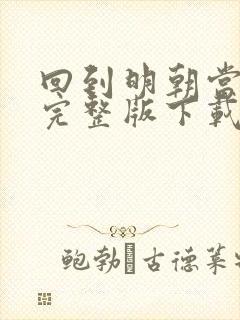 回到明朝当
完整版下载
鲍勃·古德莱